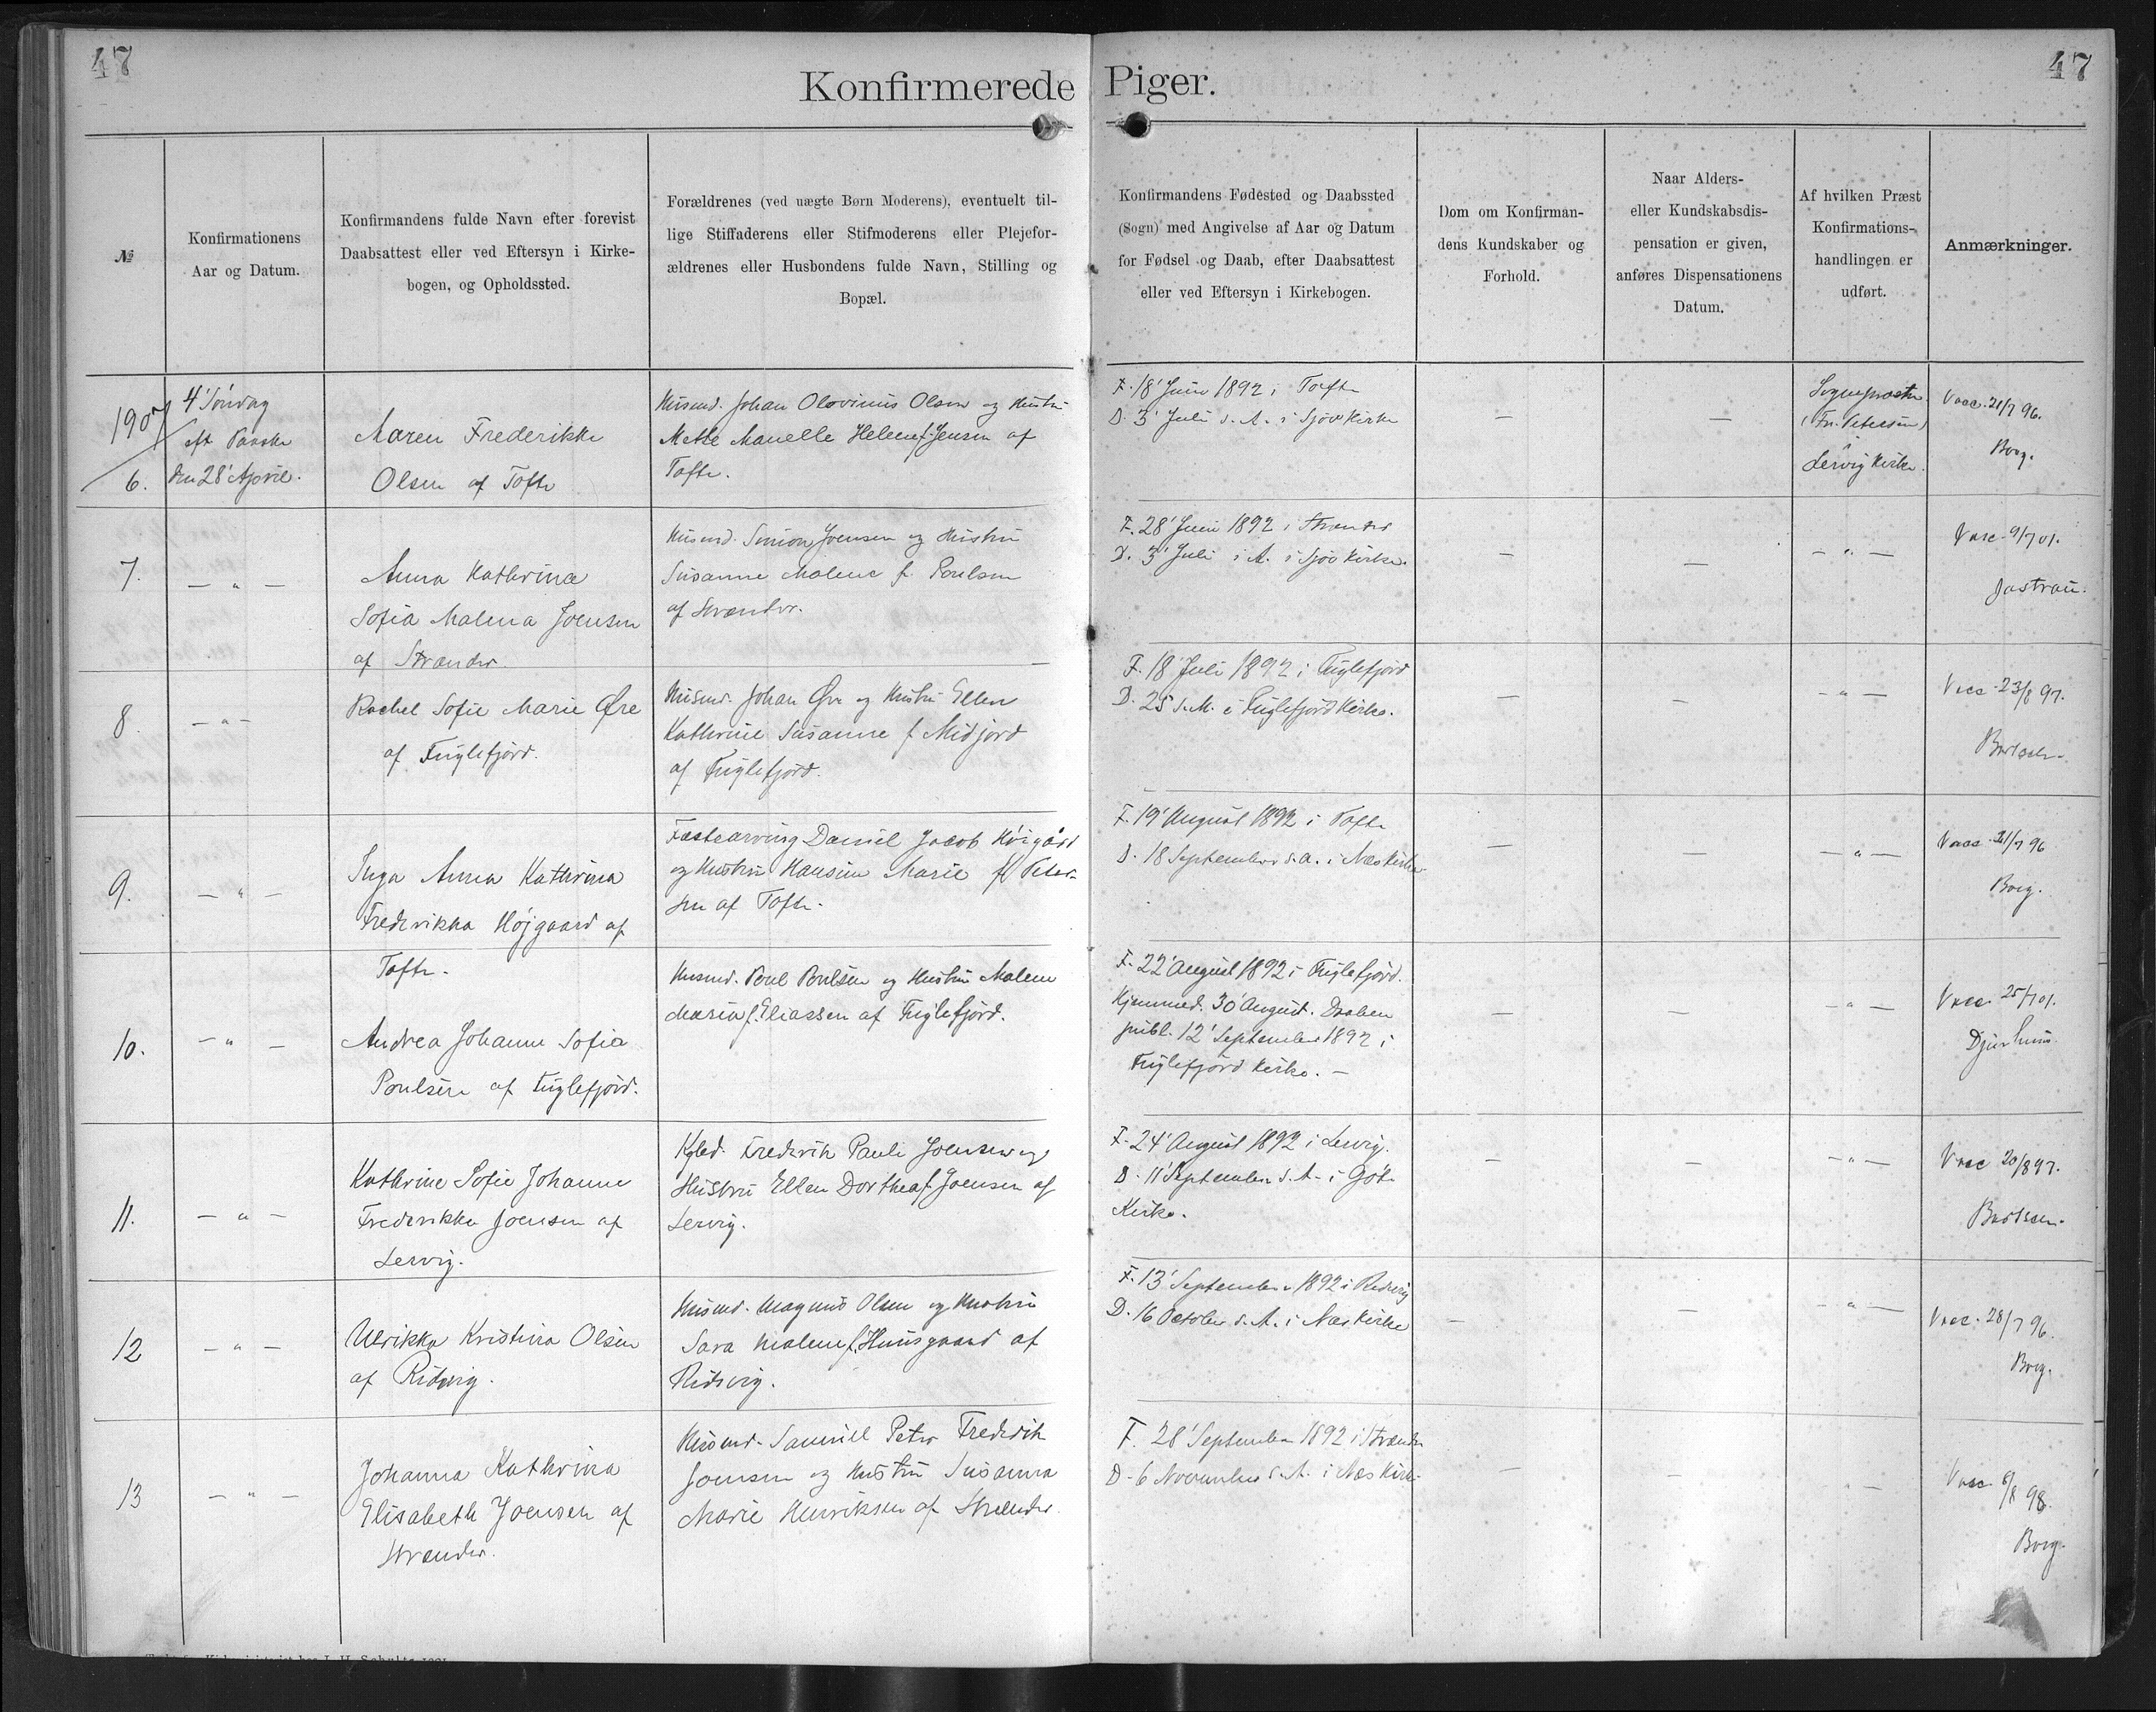 47
47
Konfirmerede Piger.
№
Konfirmationens
Aar og Datum.
Konfirmandens fulde Navn efter forevist
Daabsattest eller ved Eftersyn i Kirke-
bogen, og Opholdssted.
Forældrenes (ved uægte Børn Moderens), eventuelt til-
lige Stiffaderens eller Stifmoderens eller Plejefor-
ældrenes eller Husbondens fulde Navn, Stilling og
Bopæl.
Konfirmandens Fødested og Daabssted
(Sogn) med Angivelse af Aar og Datum
for Fødsel og Daab, efter Daabsattest
eller ved Eftersyn i Kirkebogen.
Dom om Konfirman-
dens Kundskaber og
Forhold.
Naar Alders-
eller Kundskabsdis-
pensation er given,
anføres Dispensationens
Datum.
Af hvilken Præst
Konfirmations-
handlingen er
udført.
Anmærkninger.
1907
6.
4' Søndag
eft Paaske
den 28' April.
Maren Frederikke
Olsen af Tofte
Husmd. Johan Olovinus Olsen og Hustru
Mette Manelle Helene f. Jensen af
Tofte.
F. 18' Juni 1892 i Tofte
D. 3' Juli s. A. i Sjov Kirke
—
—
Sognepræsten
(Fr. Petersen)
i
Lervig Kirke.
Vacc. 21/7 96.
Borg.
7.
— " —
Anna Kathrina
Sofia Malena Joensen
af Strænder.
Husmd. Simon Joensen og Hustru
Susanne Malene f. Poulsen
af Strænder.
F. 28' Juni 1892 i Strænder
D. 3' Juli s. A. i Sjov Kirke.
—
—
— " —
Vacc. 9/7 01.
Jastrau.
8.
— " —
Rachel Sofie Marie Øre
af Fuglefjord.
Husmd. Johan Øre og Hustru Ellen
Kathrine Susanne f. Midjord
af Fuglefjord.
F. 18' Juli 1892 i Fuglefjord
D. 25' s. M. i Fuglefjord Kirke.
—
—
— " —
Vacc. 23/8 97.
9.
— " —
Inga Anna Kathrina
Frederikka Højgaard af
Tofte.
Fæstearving Daniel Jacob Höigård
og Hustru Hansine Marie f. Peter-
sen af Tofte.
F. 19' August 1892 i Tofte
D. 18' September s. A. i Næs Kirke
—
—
— " —
Vacc. 21/7 96
Borg.
10.
— " —
Andrea Johanne Sofia
Poulsen af Fuglefjord.
Husmd. Poul Poulsen og Hustru Malene
Maria f. Eliassen af Fuglefjord.
F. 22' August 1892 i Fuglefjord.
Hjemmed. 30' August. Daaben
publ. 12' September 1892 i
Fuglefjord Kirke. —
—
—
— " —
Vacc. 25/7 01.
Djurhuus.
11.
— " —
Kathrine Sofie Johanne
Frederikke Joensen af
Lervig.
Kgbd. Fredrik Pauli Joensen og
Hustru Ellen Dorthea f. Joensen af
Lervig.
F. 24' August 1892 i Lervig.
D. 11' September s. A. i Göte
Kirke.
—
—
— " —
Vacc 20/8 97.
12
— " —
Ulrikka Kristina Olsen
af Ridevig.
Husmd. Magnus Olsen og Hustru
Sara Malene f. Huusgaard af
Ridevig.
F. 13' September 1892 i Ridevig
D. 16 October s. A. i Næs Kirke
—
—
— " —
Vacc. 28/7 96.
Borg.
13
— " —
Johanna Kathrina
Elisabeth Joensen af
Strænder.
Husmd. Samuel Peter Fredrik
Joensen og Hustru Susanna
Marie Henriksen af Strænder.
F. 28' September 1892 i Strænder
D. 6 November s. A. i Næs Kirke.
—
—
" —
Vacc. 6/8 98.
Borg.